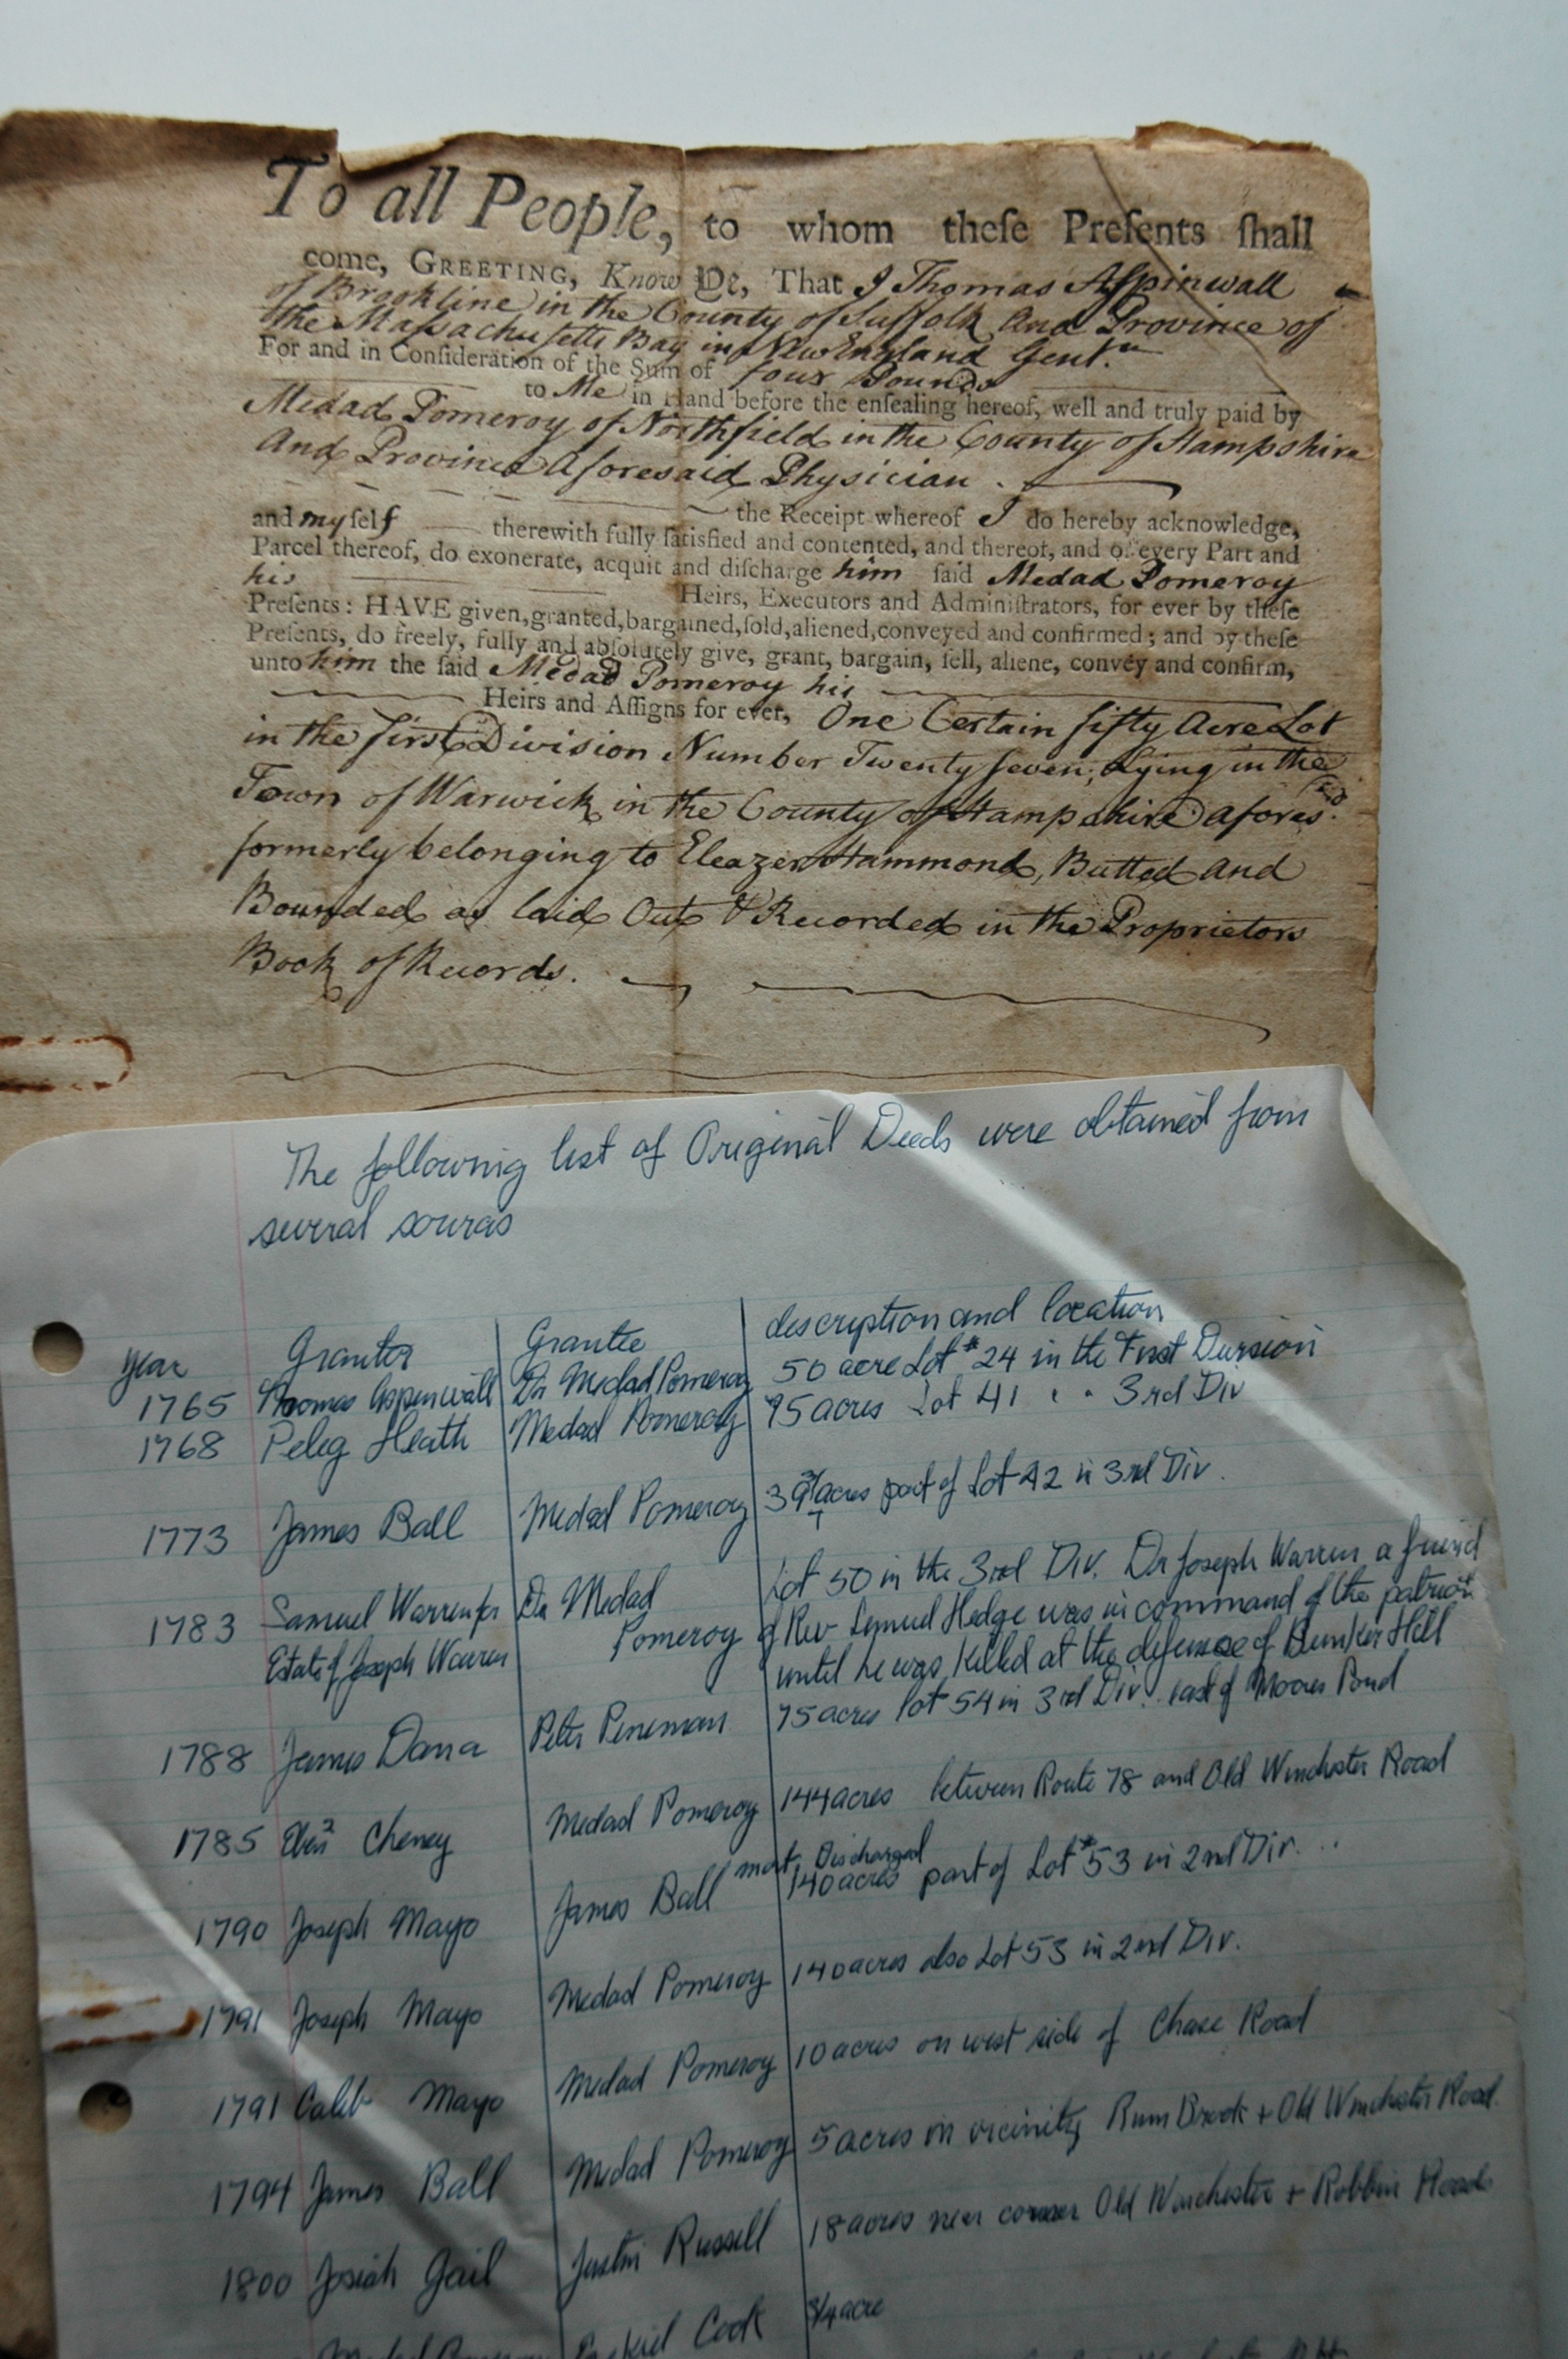 To all People, to whom theſe Preſents ſhall
come, GREETING, Know Ye, That I Thomas Aſpinwall
of Brookline in the County of Suffolk And Province of
the Maſsachuſetts Bay in New England Gent.n
For and in Conſideration of the Sum of four Pounds
to Me in Hand before the enſealing hereof, well and truly paid by
Medad Pomeroy of Northfield in the County of Hampshire
And Province Aforesaid Physician.
the Receipt whereof I do hereby acknowledge,
and my ſelf therewith fully ſatisfied and contented, and thereof, and of every Part and
Parcel thereof, do exonerate, acquit and diſcharge him ſaid Medad Pomeroy
his Heirs, Executors and Adminiſtrators, for ever by theſe
Preſents: HAVE given, granted, bargained, ſold, aliened, conveyed and confirmed; and by theſe
Preſents, do freely, fully and abſolutely give, grant, bargain, ſell, aliene, convey and confirm,
unto him the ſaid Medad Pomeroy his
Heirs and Aſſigns for ever, One Certain fifty Acre Lot
in the first Division Number Twenty seven; Lying in the
Town of Warwick in the County of Hampshire afores.d
formerly belonging to Eleazer Hammond, Butted and
Bounded as laid Out & Recorded in the Proprietors
Book of Records.
The following list of Original Deeds were obtained from
several sources
Year Granter Grantee description and location
1765 Thomas Aspenwall Dr Medad Pomeroy 50 acre Lot #24 in the First Division
1768 Peleg Heath Medad Pomeroy 75 acres Lot 41 " " 3rd Div
1773 James Ball Medad Pomeroy acres part of Lot 42 in 3rd Div.
1783 Samuel Warren for Dr Medad Lot 50 in the 3rd Div. Dr Joseph Warren a friend
Estate of Joseph Warren Pomeroy of Rev Lemuel Hedge was in command of the patriots
until he was killed at the defense of Bunker Hill
1788 James Dana Peter Peneman 75 acres lot 54 in 3rd Div. east of Moores Pond
1785 Cheney Medad Pomeroy 144 acres between Route 78 and Old Winchester Road
1790 Joseph Mayo James Ball mort. Discharged 140 acres part of Lot #53 in 2nd Div.
1791 Joseph Mayo Medad Pomeroy 140 acres also Lot 53 in 2nd Div.
1791 Caleb Mayo Medad Pomeroy 10 acres on west side of Chase Road
1794 James Ball Medad Pomeroy 5 acres in vicinity Rum Brook + Old Winchester Road.
1800 Josiah Gail Justin Russell 18 acres near corner Old Winchester + Robbin Roads
Medad Ezekiel Cook 3/4 acre